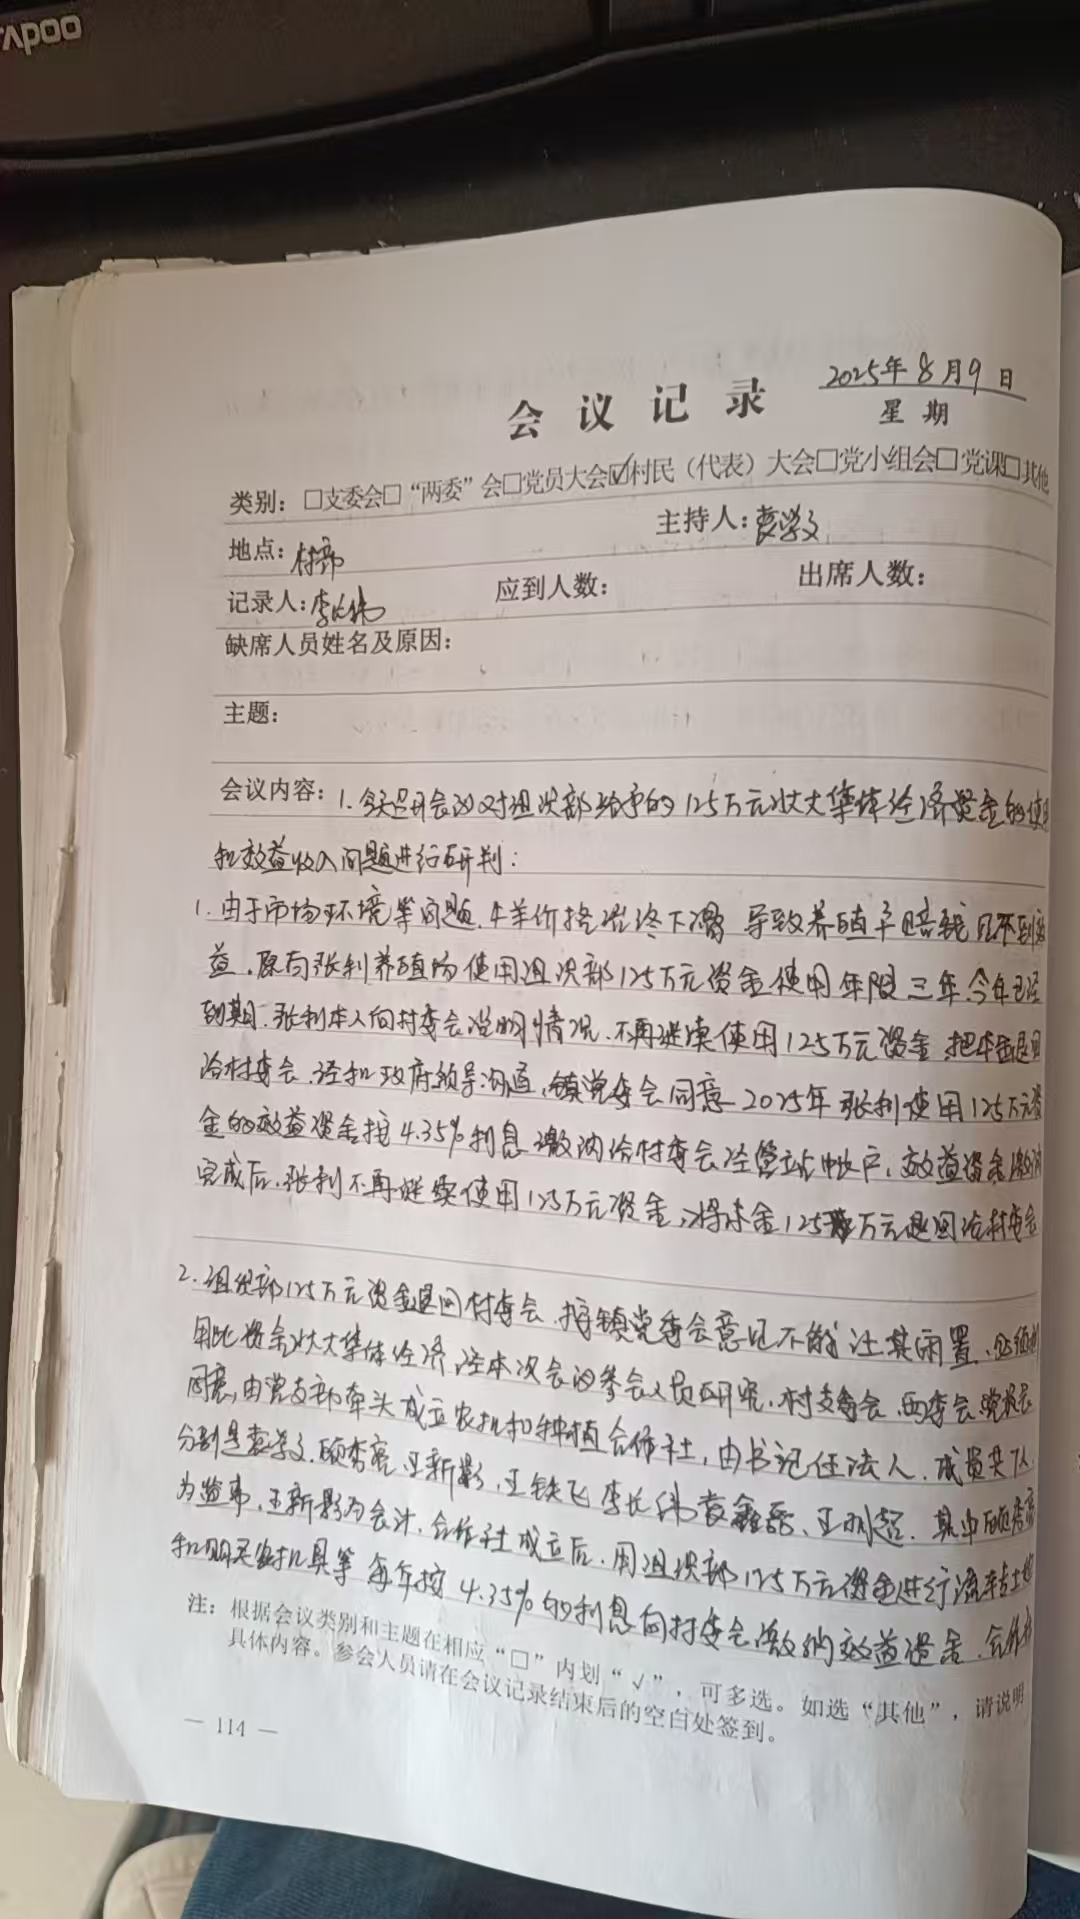 apoo
2025年8月9日
会议记录
星期
类别：□支委会□“两委”会□党员大会☑村民（代表）大会□党小组会□党课□其他
地点：村部
主持人：袁学文
记录人：李长伟
应到人数：
出席人数：
缺席人员姓名及原因：
主题：
会议内容：1.今天召开会议对组织部给予的125万元壮大集体经济资金的使用
和效益收入问题进行研判：
1.由于市场环境等问题，牛羊价格始终下滑 导致养殖户赔钱 见不到效
益，原有张利养殖场使用组织部125万元资金使用年限三年，今年已经
到期，张利本人向村委会说明情况，不再继续使用125万元资金 把本金退回
给村委会，经和政府领导沟通，镇党委会同意2025年张利使用125万元资
金的效益资金按4.35%利息缴纳给村委会经管站帐户，效益资金缴纳
完成后，张利不再继续使用125万元资金，将本金125万元退回给村委会
2.组织部125万元资金退回村委会，按镇党委会意见不能让其闲置，必须利
用此资金壮大集体经济，经本次会议参会人员研究，村支委会，两委会党员
同意，由党支部牵头成立农机和种植合作社，由书记任法人，成员共7人
分别是袁学文，顾秀亮，王新影，王铁飞 李长伟 袁鑫磊，王明超，其中顾秀亮
为监事，王新影为会计，合作社成立后，用组织部125万元资金进行流转土地
和购买农机具等 每年按4.35%的利息向村委会缴纳效益资金，合作社
注：根据会议类别和主题在相应“□”内划“√”，可多选。如选“其他”，请说明
具体内容。参会人员请在会议记录结束后的空白处签到。
— 114 —